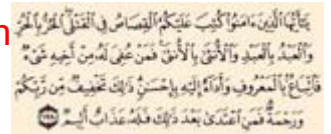 يَٰٓأَيُّهَا ٱلَّذِينَ ءَامَنُوا۟ كُتِبَ عَلَيْكُمُ ٱلْقِصَاصُ فِى ٱلْقَتْلَى ۖ ٱلْحُرُّ بِٱلْحُرِّ
وَٱلْعَبْدُ بِٱلْعَبْدِ وَٱلْأُنثَىٰ بِٱلْأُنثَىٰ ۚ فَمَنْ عُفِىَ لَهُۥ مِنْ أَخِيهِ شَىْءٌ
فَٱتِّبَاعٌۢ بِٱلْمَعْرُوفِ وَأَدَآءٌ إِلَيْهِ بِإِحْسَٰنٍ ۗ ذَٰلِكَ تَخْفِيفٌ مِّن رَّبِّكُمْ
وَرَحْمَةٌ ۗ فَمَنِ ٱعْتَدَىٰ بَعْدَ ذَٰلِكَ فَلَهُۥ عَذَابٌ أَلِيمٌ ۝١٧٨